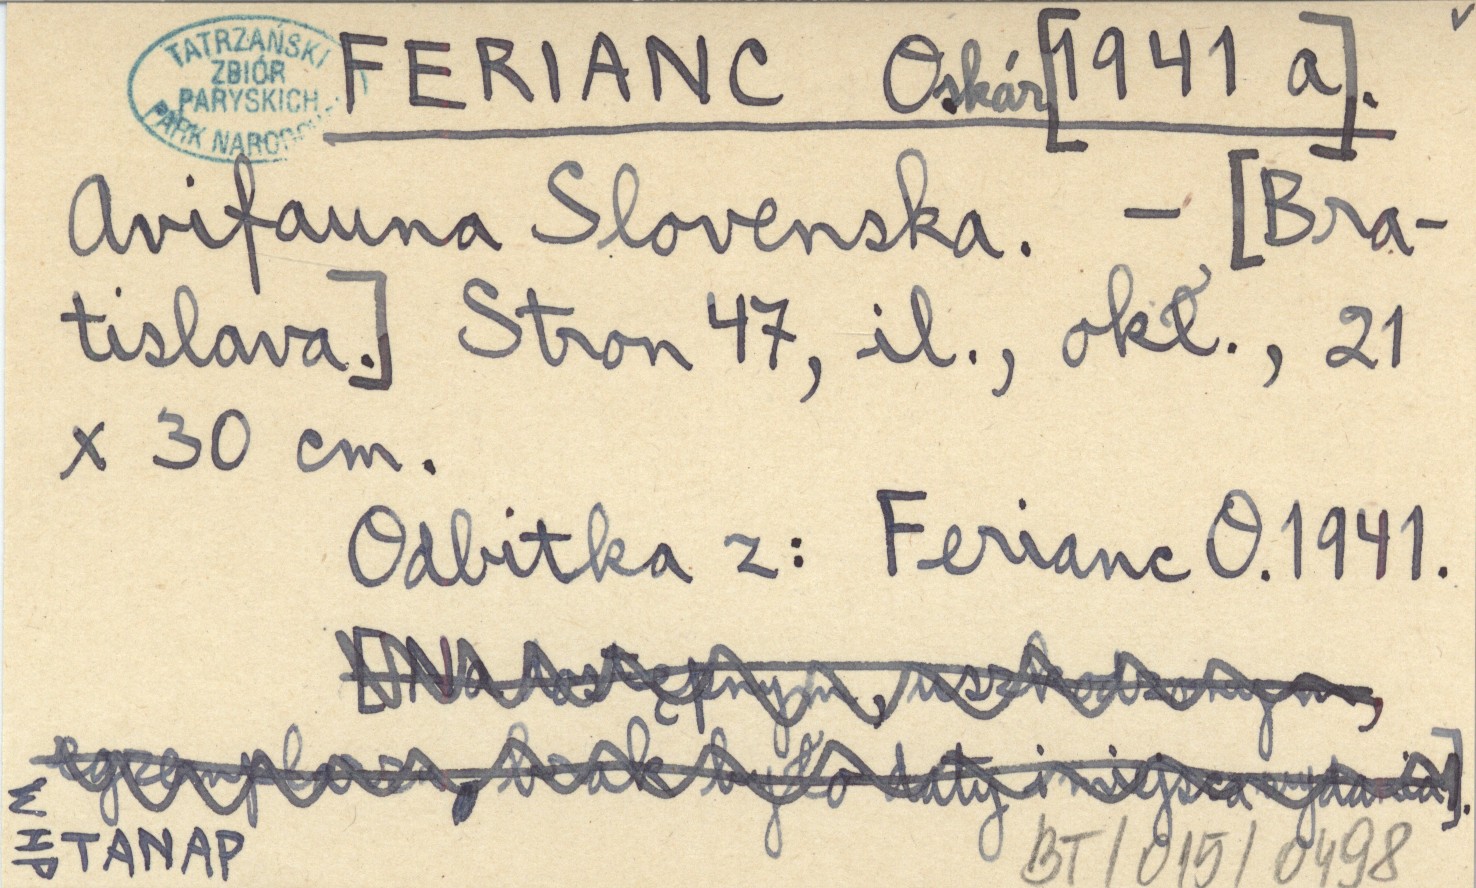 TATRZAŃSKI
ZBIÓR
PARYSKICH
PARK NARODOWY
FERIANC Oskár [1941 a].
Avifauna Slovenska. – [Bra-
tislava.] Stron 47, il., okł., 21
x 30 cm.
Odbitka z: Ferianc O. 1941.
[Na dostępnym, uszkodzonym,
egzemplarzu, brak było daty i miejsca wydania].
WHP
TANAP
BT/015/0498